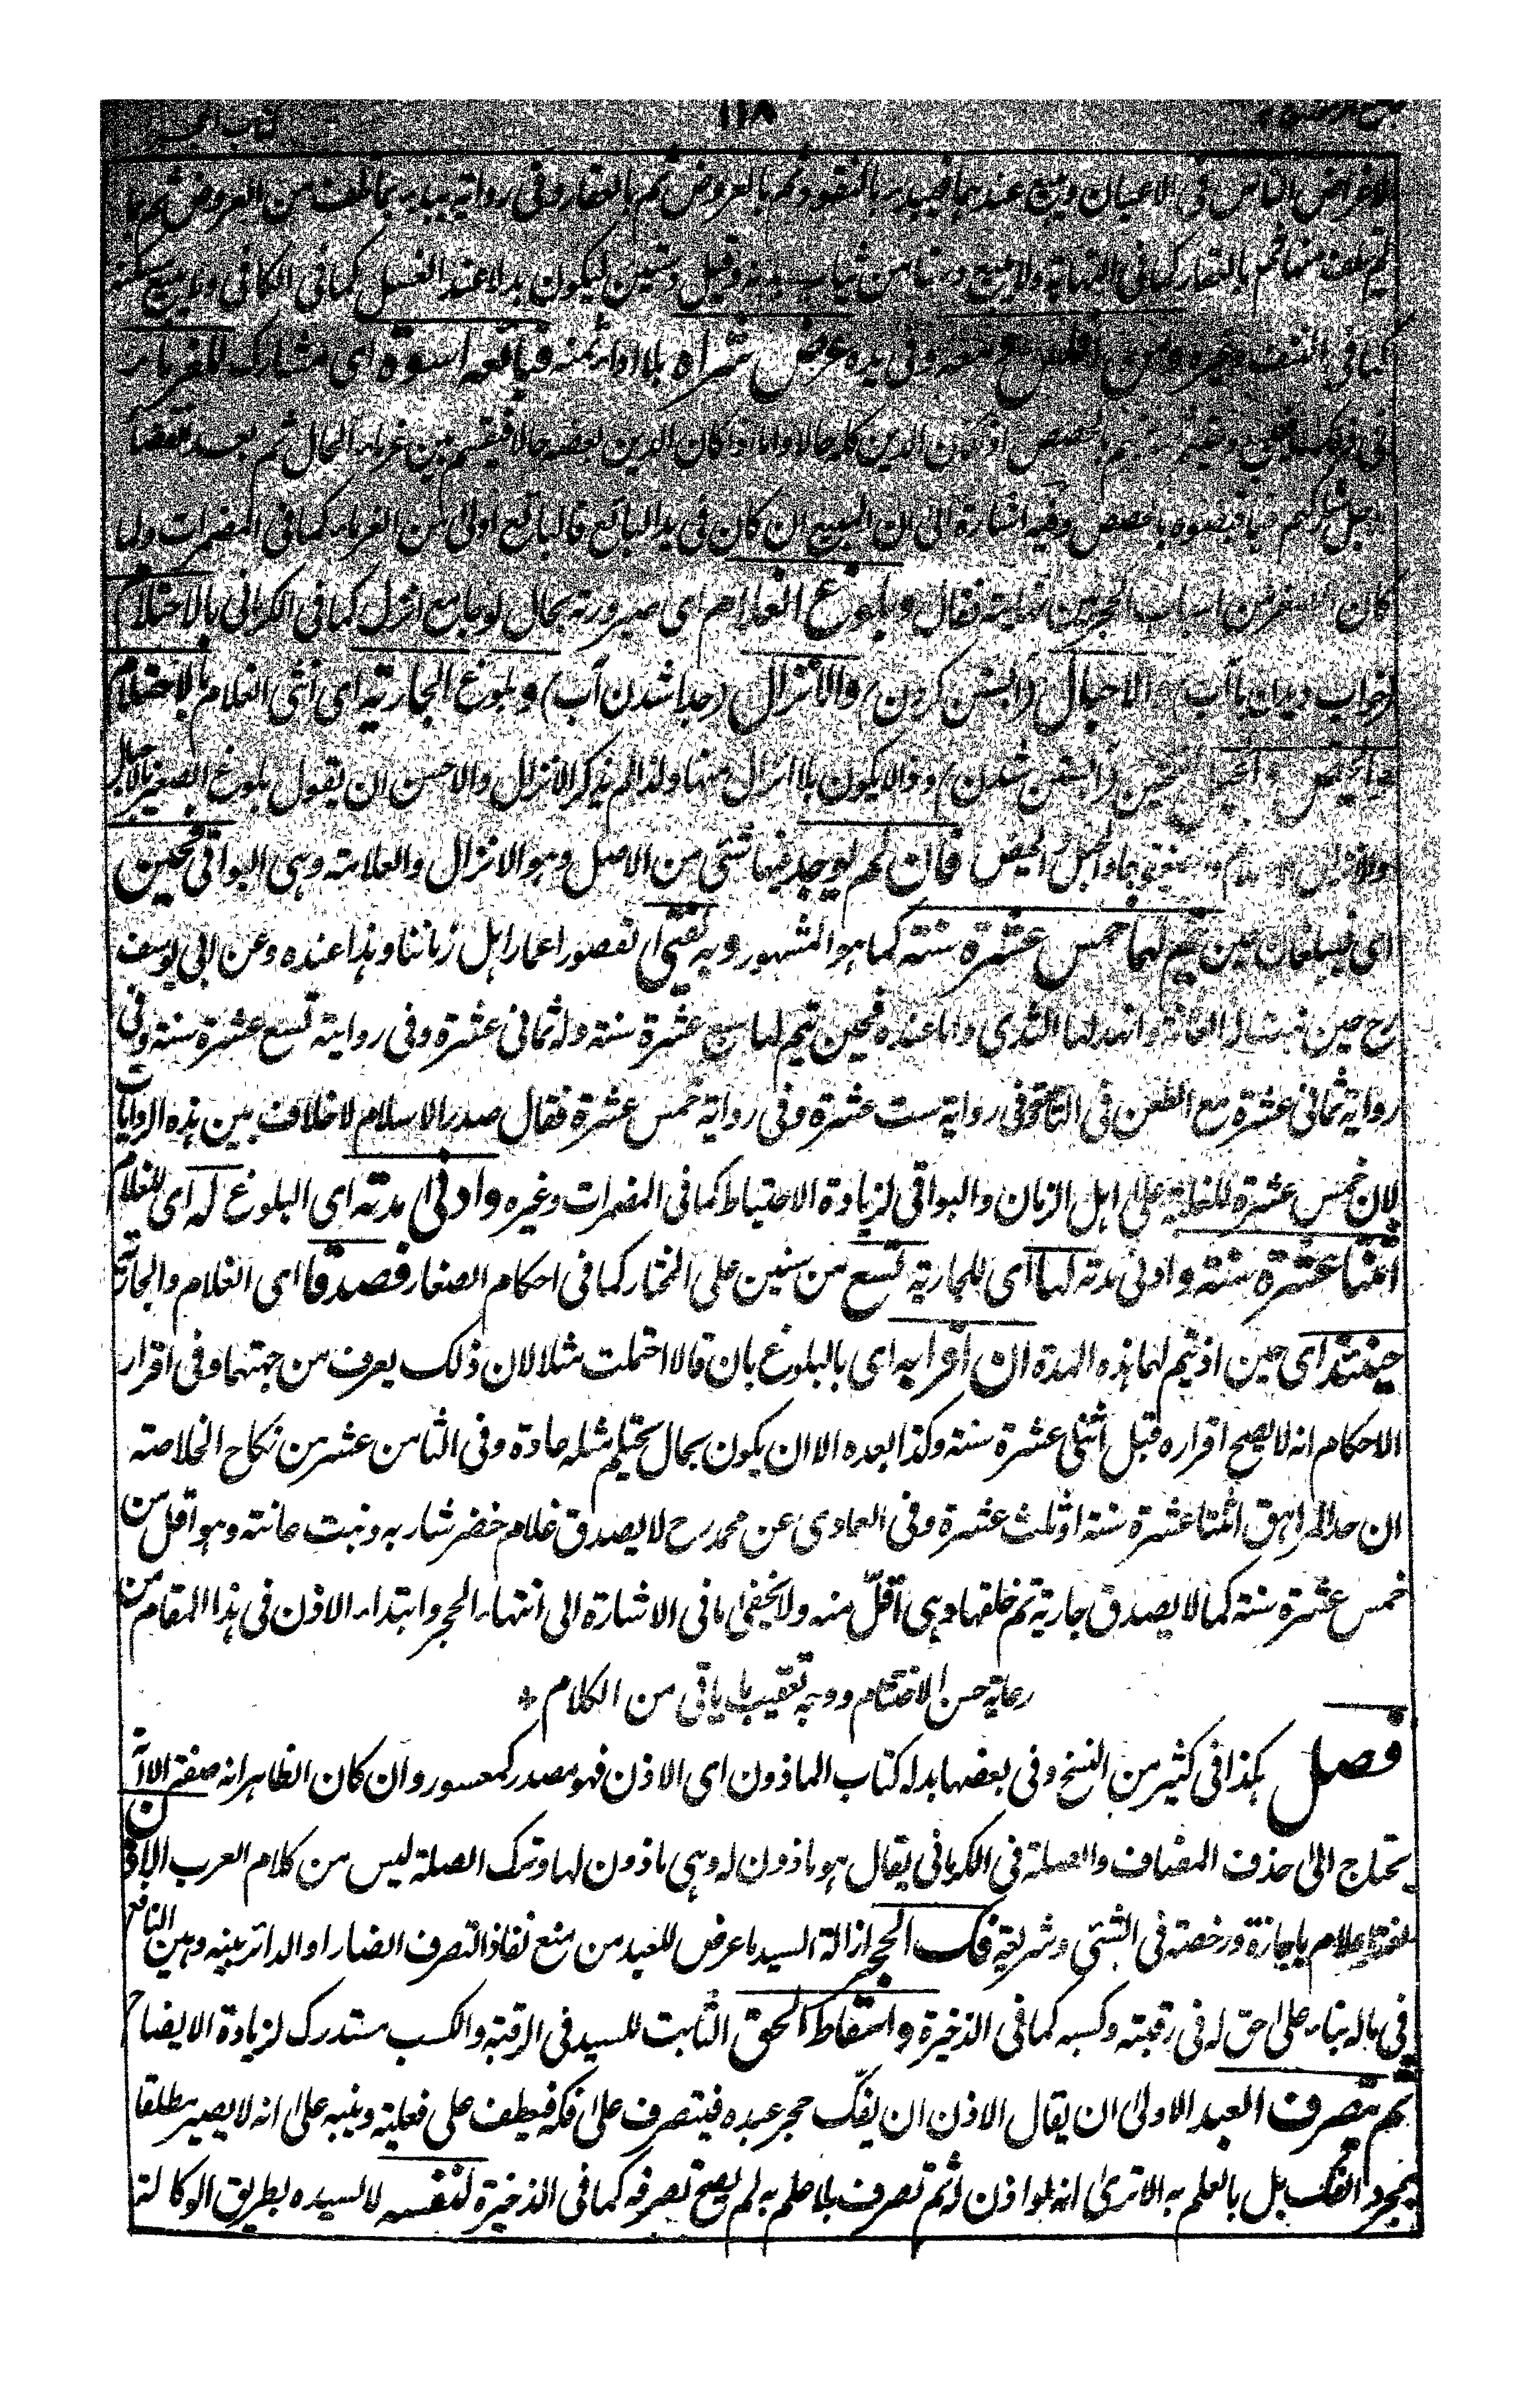 ١١٨
لاغراض الناس في الاعيان وعندهما يبدء بالنقود ثم بالعروض ثم بالعقار وفي رواية يبدء بما تلف من العروض ثم بما
لم يتلف منها ثم بالعقار كما في النهاية ولا يبيع من ثياب بدنه وقيل دستين ليكون بدلا عند الغسل كما في الكافي ولا يبيع سكنه
كما في ومن افلس معه وفي يده عرض شراه بلا اداء ثمنه فبائعه اسوة اى مشارك للغرماء
في بالحصص اذ يكون الدين كله حالا واما اذا كان الدين بعضه حالا فيقسم بين غرماء الحال ثم بعد انقضاء
بالحصص وفيه اشارة الى ان المبيع ان كان في يد البائع فالبائع اولى من الغرماء كما في المضمرات ولما
كان الصغر من اسباب الحجر بين نهايته فقال وبلوغ الغلام اى صيرورته بحال لو جامع انزل كما في الكرمانى بالاحتلام
(خواب ديدن باآب) والاحبال (آبستن كردن) والانزال (جدا شدن آب) وبلوغ الجارية اى انثى الغلام بالاحتلام
والحيض والحبل (آبستن شدن) و ذا لا يكون بلا انزال منها ولذا لم يذكر الانزال والاحسن ان يقول بلوغ الصغير بالاحبال
والانزال والحبل والحيض فان لم يوجد فيهما شئ من الاصل وهو الانزال والعلامة وهى البواقى فحين
اى فيبلغان حين يتم لهما خمس عشرة سنة كما هو المشهور وبه يفتى اى لقصور اعمار اهل زماننا وهذا عنده وعن ابى يوسف
رح حين نبت له العانة وانهد لها الثدى واما عنده فحين يتم لها سبع عشرة سنة وله ثمانى عشرة وفي رواية تسع عشرة سنة وفي
رواية ثمانى عشرة مع الطعن في التاسعة وفي رواية ست عشرة وفي رواية خمس عشرة فقال صدر الاسلام لا خلاف بين هذه الروايات
لان خمس عشرة للغلبة على اهل الزمان والبواقى لزيادة الاحتياط كما في المضمرات وغيره وادنى مدته اى البلوغ له اى للغلام
اثنتا عشرة سنة وادنى مدته لها اى للجارية تسع من سنين على المختار كما في احكام الصغار فصدقا اى الغلام والجارية
حينئذ اى حين اذ يتم لهما هذه المدة ان اقرا به اى بالبلوغ بان قالا احتلمت مثلا لان ذلك يعرف من جهتهما وفي اقرار
الاحكام انه لا يصح اقراره قبل اثنى عشرة سنة وكذا بعده الا ان يكون بحال يحتلم مثله عادة وفي الثامن عشر من نكاح الخلاصة
ان حد المراهق اثنتا عشرة سنة او ثلث عشرة وفي العمادى عن محمد رح لا يصدق غلام خضر شاربه ونبت عانته وهو اقل من
خمس عشرة سنة كما لا يصدق جارية تم خلقها وهى اقل منه ولا يخفى ما في الاشارة الى انتهاء الحجر وابتداء الاذن في هذا المقام من
رعاية حسن الاختتام ووجه تعقيب ما ياتى من الكلام +
فصل هكذا في كثير من النسخ وفي بعضها بدله كتاب الماذون اى الاذن فهو مصدر كمعسور وان كان الظاهر انه صفة الا انه
يحتاج الى حذف المضاف والصلة في الكرمانى يقال هو ماذون له وهى ماذون لها وترك الصلة ليس من كلام العرب الاذن
لغة اعلام باجازة ورخصة في الشئ وشريعة فك الحجر ازالة السيد ما عرض للعبد من منع نفاذ التصرف الضار او الدائر بينه وبين النافع
في ماله بناء على حق له في رقبته وكسبه كما في الذخيرة واسقاط الحق الثابت للسيد في الرقبة والكسب مستدرك لزيادة الايضاح
ثم يتصرف العبد الاولى ان يقال الاذن ان يفك حجر عبده فيتصرف على فكه فيعطف على فعلية وينبه على انه لا يصير مطلقا
بمجرد الفك بل بالعلم به الا ترى انه لو اذن له ثم تصرف بلا علم به لم يصح تصرفه كما في الذخيرة لنفسه لا لسيده بطريق الوكالة